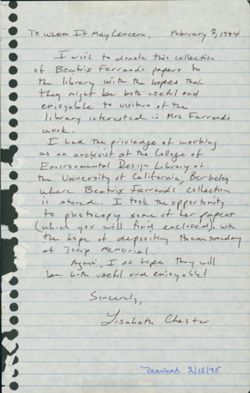 To Whom It May Concern, February 3, 1994
I wish to donate this collection
of Beatrix Farrand's papers to
the library with the hopes that
they might be both useful and
enjoyable to visitors of the
library interested in Mrs Farrand's
work.
I had the privilege of working
as an archivist at the College of
Environmental Design Library at
the University of California, Berkeley
where Beatrix Farrand's collection
is stored. I took the opportunity
to photocopy some of her papers
(which you will find enclosed), with
the hope of depositing them someday
at Memorial.
Again, I do hope they will
be both useful and enjoyable!
Sincerely,
Lisabeth Chester
Thanked 2/15/95